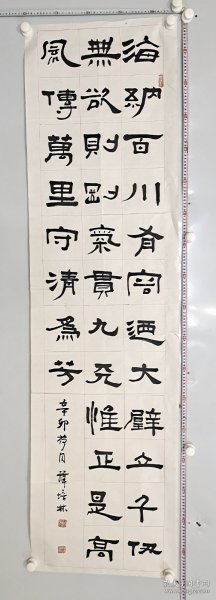 海納百川有容迺大壁立千仞
無欲則剛氣貫九天惟正是高
風傳萬里守清為芳
辛卯